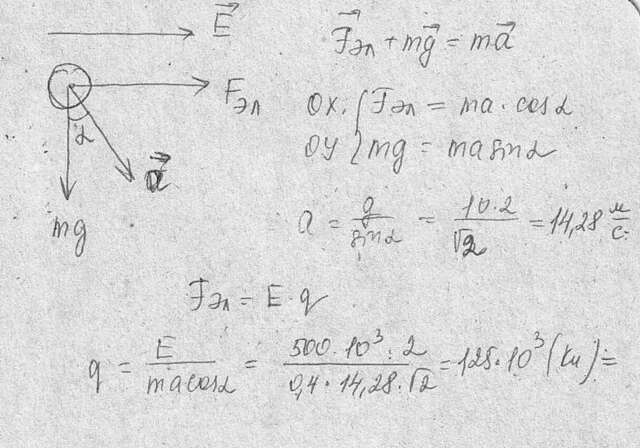 E⃗
F⃗эл + mg⃗ = ma⃗
Fэл
OX: { Fэл = ma · cosα
OY { mg = ma sinα
α
a⃗
mg
a = g/sinα = 10·2/√2 = 14,28 м/с.
Fэл = E · q
q = E/(ma cosα) = 500·10³·2/(0,4·14,28·√2) = 125·10³ (Кл) =